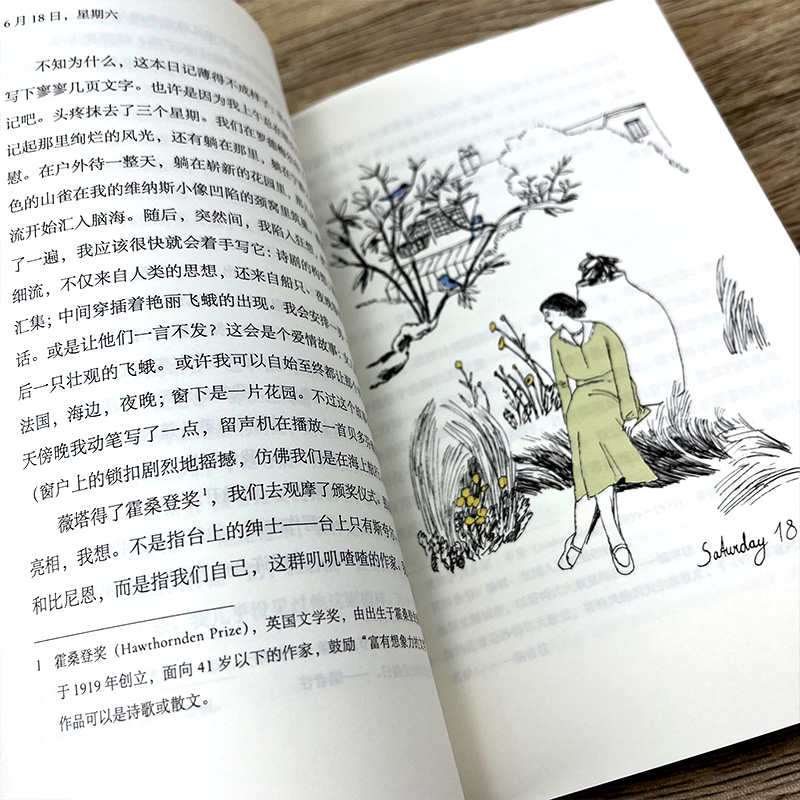 6月18日，星期六
不知为什么，这本日记薄得不成样子，
写下寥寥几页文字。也许是因为我上午总在
记吧。头疼抹去了三个星期。我们在罗德
记起那里绚烂的风光，还有躺在那里，躺在
慰。在户外待一整天，躺在崭新的花园里，那
色的山雀在我的维纳斯小像凹陷的颈窝里筑
流开始汇入脑海。随后，突然间，我陷入狂想，
了一遍，我应该很快就会着手写它：诗剧的构想
细流，不仅来自人类的思想，还来自船只、夜晚
汇集；中间穿插着艳丽飞蛾的出现。我会安排一
话。或是让他们一言不发？这会是个爱情故事：
后一只壮观的飞蛾。或许我可以自始至终都让那
法国，海边，夜晚；窗下是一片花园。不过这个
天傍晚我动笔写了一点，留声机在播放一首贝多
（窗户上的锁扣剧烈地摇撼，仿佛我们是在海上
薇塔得了霍桑登奖1，我们去观摩了颁奖仪式。
亮相，我想。不是指台上的绅士——台上只有斯夸尔
和比尼恩，而是指我们自己，这群叽叽喳喳的作家。
1 霍桑登奖（Hawthornden Prize），英国文学奖，由出生于霍桑登
于1919年创立，面向41岁以下的作家，鼓励“富有想象力的文
作品可以是诗歌或散文。
Saturday 18